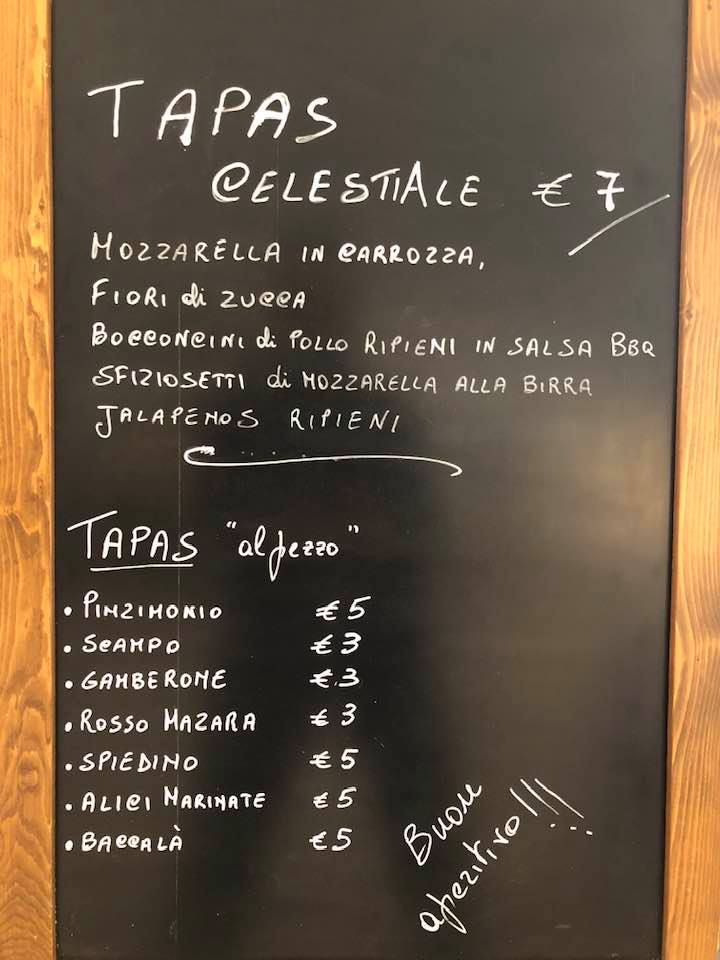 TAPAS
CELESTIALE € 7
MOZZARELLA IN CARROZZA,
FIORI di ZUCCA
BOCCONCINI di POLLO RIPIENI IN SALSA BBQ
SFIZIOSETTI di MOZZARELLA ALLA BIRRA
JALAPENOS RIPIENI
TAPAS "al pezzo"
• PINZIMONIO € 5
• SCAMPO € 3
• GAMBERONE € 3
• ROSSO MAZARA € 3
• SPIEDINO € 5
• ALICI MARINATE € 5
• BACCALÀ € 5
Buon
aperitivo!!!